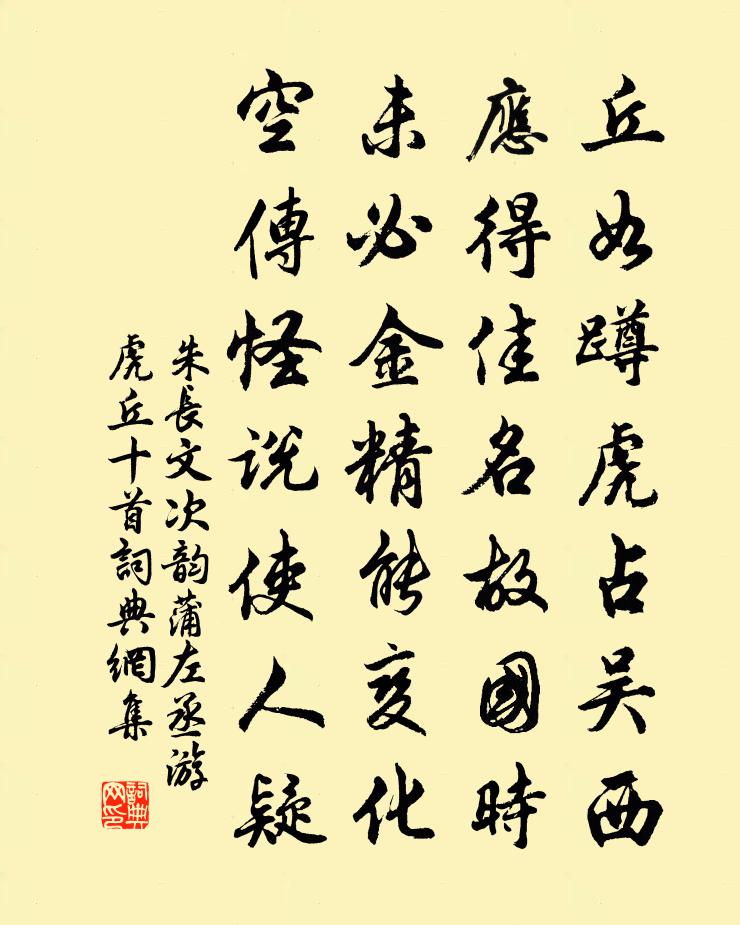 丘如蹲虎占吴西
應得佳名故國時
未必金精能变化
空傳怪说使人疑
朱長文次韵蒲左丞游
虎丘十首詞典網集
詞典
网印